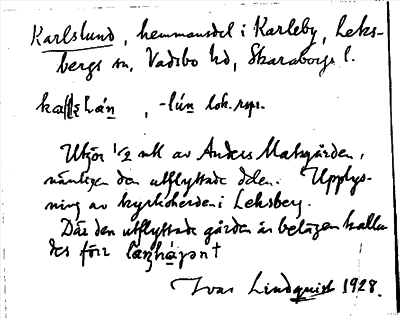 Karlslund, hemmansdel i Karleby, Leks-
bergs sn, Vadsbo hd, Skaraborgs l.
, -lún lok. rsps.
Utgör 1/2 mtl av Anders Matsgården,
nämligen den utflyttade delen. Upplys-
ning av kyrkoherden i Leksberg.
Där den utflyttade gården är belägen kalla-
des förr
Ivar Lindquist 1928.